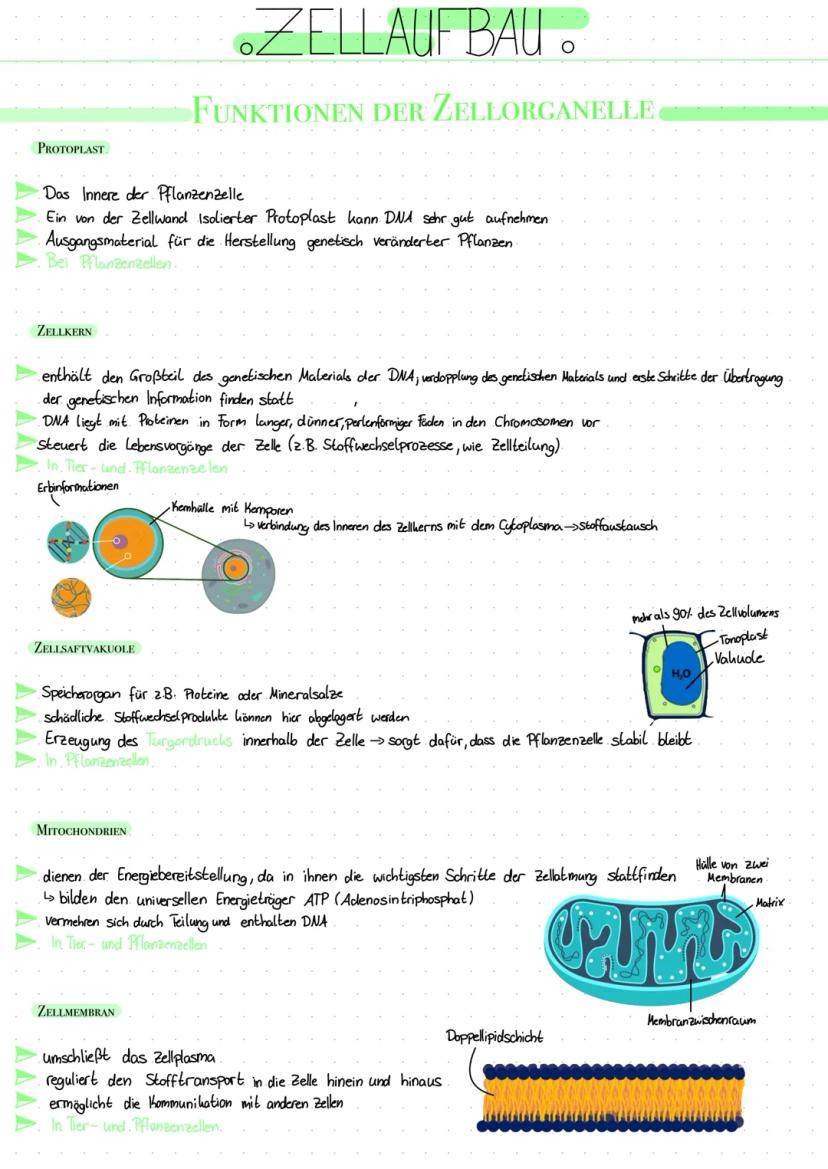 ZELLAUFBAU
FUNKTIONEN DER ZELLORGANELLE
PROTOPLAST
Das Innere der Pflanzenzelle
Ein von der Zellwand Isolierter Protoplast kann DNA sehr gut aufnehmen
Ausgangsmaterial für die Herstellung genetisch veränderter Pflanzen
Bei Pflanzenzellen.
ZELLKERN
enthält den Großteil des genetischen Materials der DNA; verdopplung des genetischen Materials und erste Schritte der Übertragung
der genetischen Information finden statt
DNA liegt mit Proteinen in Form langer, dünner, perlenförmiger Fäden in den Chromosomen vor
steuert die Lebensvorgänge der Zelle (z.B. Stoffwechselprozesse, wie Zellteilung)
In Tier- und Pflanzenzellen
Erbinformationen
Kernhülle mit Kernporen
↳ verbindung des Inneren des Zellkerns mit dem Cytoplasma → Stoffaustausch
mehr als 90% des Zellvolumens
Tonoplast
Vakuole
H₂O
ZELLSAFTVAKUOLE
Speicherorgan für z.B. Proteine oder Mineralsalze
schädliche Stoffwechselprodukte können hier abgelagert werden
Erzeugung des Turgordrucks innerhalb der Zelle → sorgt dafür, dass die Pflanzenzelle stabil bleibt
In Pflanzenzellen.
MITOCHONDRIEN
dienen der Energiebereitstellung, da in ihnen die wichtigsten Schritte der Zellatmung stattfinden
↳ bilden den universellen Energieträger ATP (Adenosintriphosphat)
vermehren sich durch Teilung und enthalten DNA
In Tier- und Pflanzenzellen
Hülle von zwei
Membranen
Matrix
Membranzwischenraum
ZELLMEMBRAN
umschließt das Zellplasma
reguliert den Stofftransport in die Zelle hinein und hinaus
ermöglicht die Kommunikation mit anderen Zellen
In Tier- und Pflanzenzellen.
Doppellipidschicht